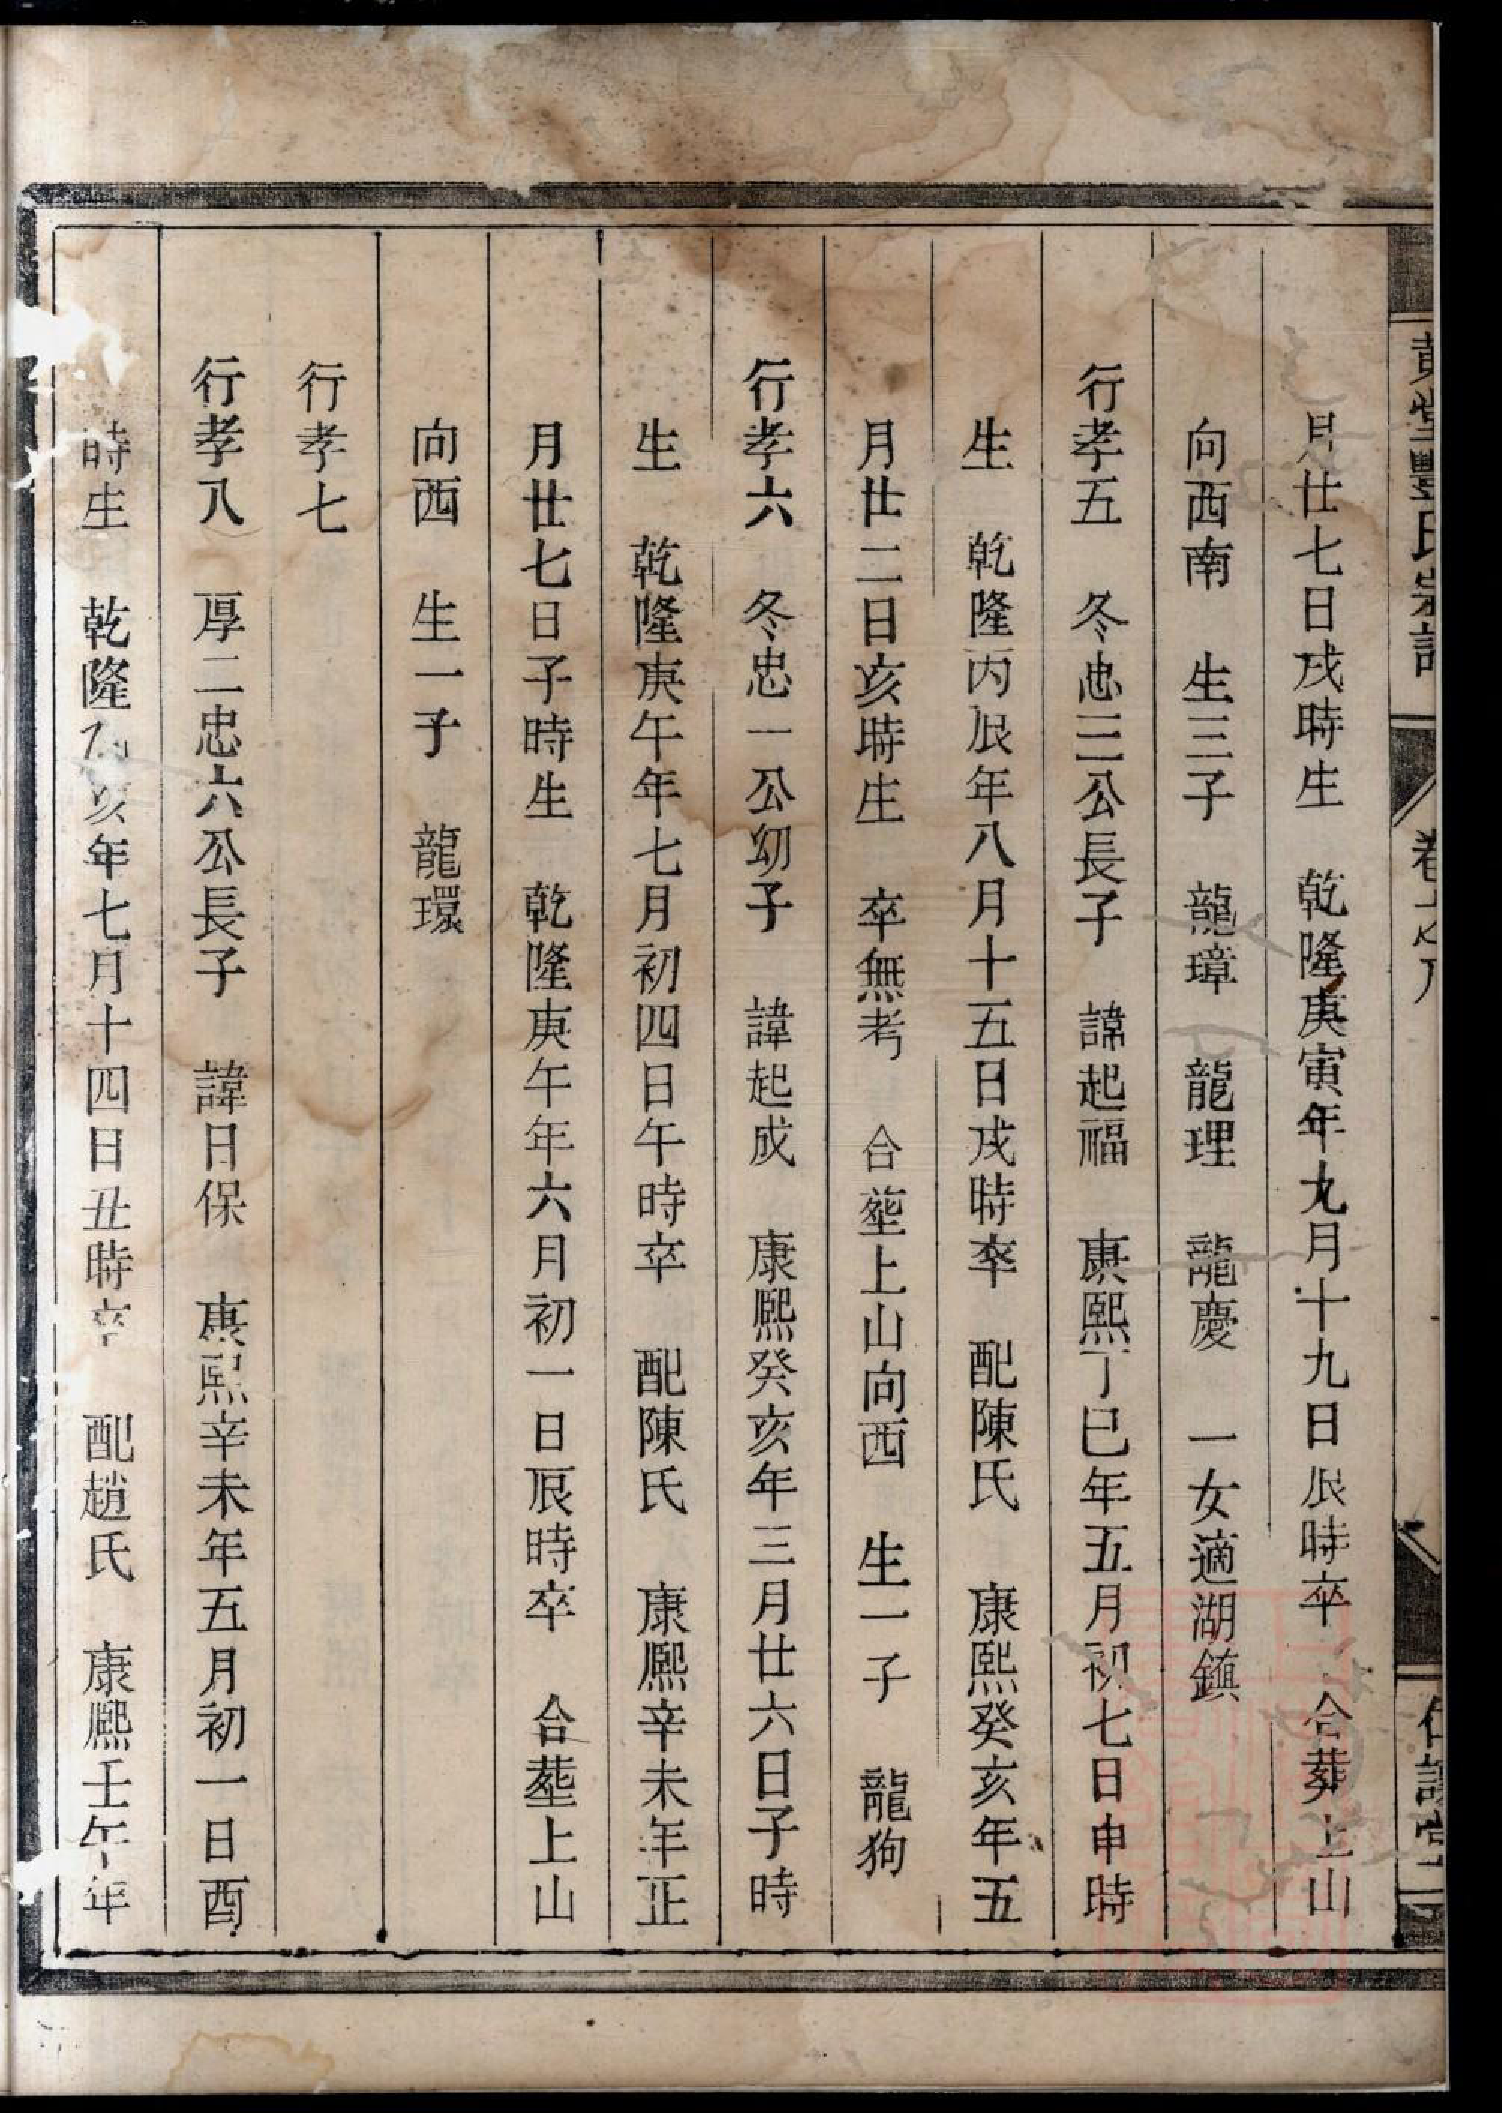 黃堂豐氏宗譜 卷之八
月廿七日戌時生 乾隆庚寅年九月十九日辰時卒 合葬上山
向西南 生三子 龍璋 龍理 龍慶 一女適湖鎮
行孝五 冬忠三公長子 諱起福 康熙丁巳年五月初七日申時
生 乾隆丙辰年八月十五日戌時卒 配陳氏 康熙癸亥年五
月廿二日亥時生 卒無考 合塟上山向西 生一子 龍狗
行孝六 冬忠一公幼子 諱起成 康熈癸亥年三月廿六日子時
生 乾隆庚午年七月初四日午時卒 配陳氏 康熈辛未年正
月廿七日子時生 乾隆庚午年六月初一日辰時卒 合塟上山
向西 生一子 龍環
行孝七
行孝八 厚二忠六公長子 諱日保 康熙辛未年五月初一日酉
時生 乾隆乙亥年七月十四日丑時卒 配趙氏 康熈壬午年